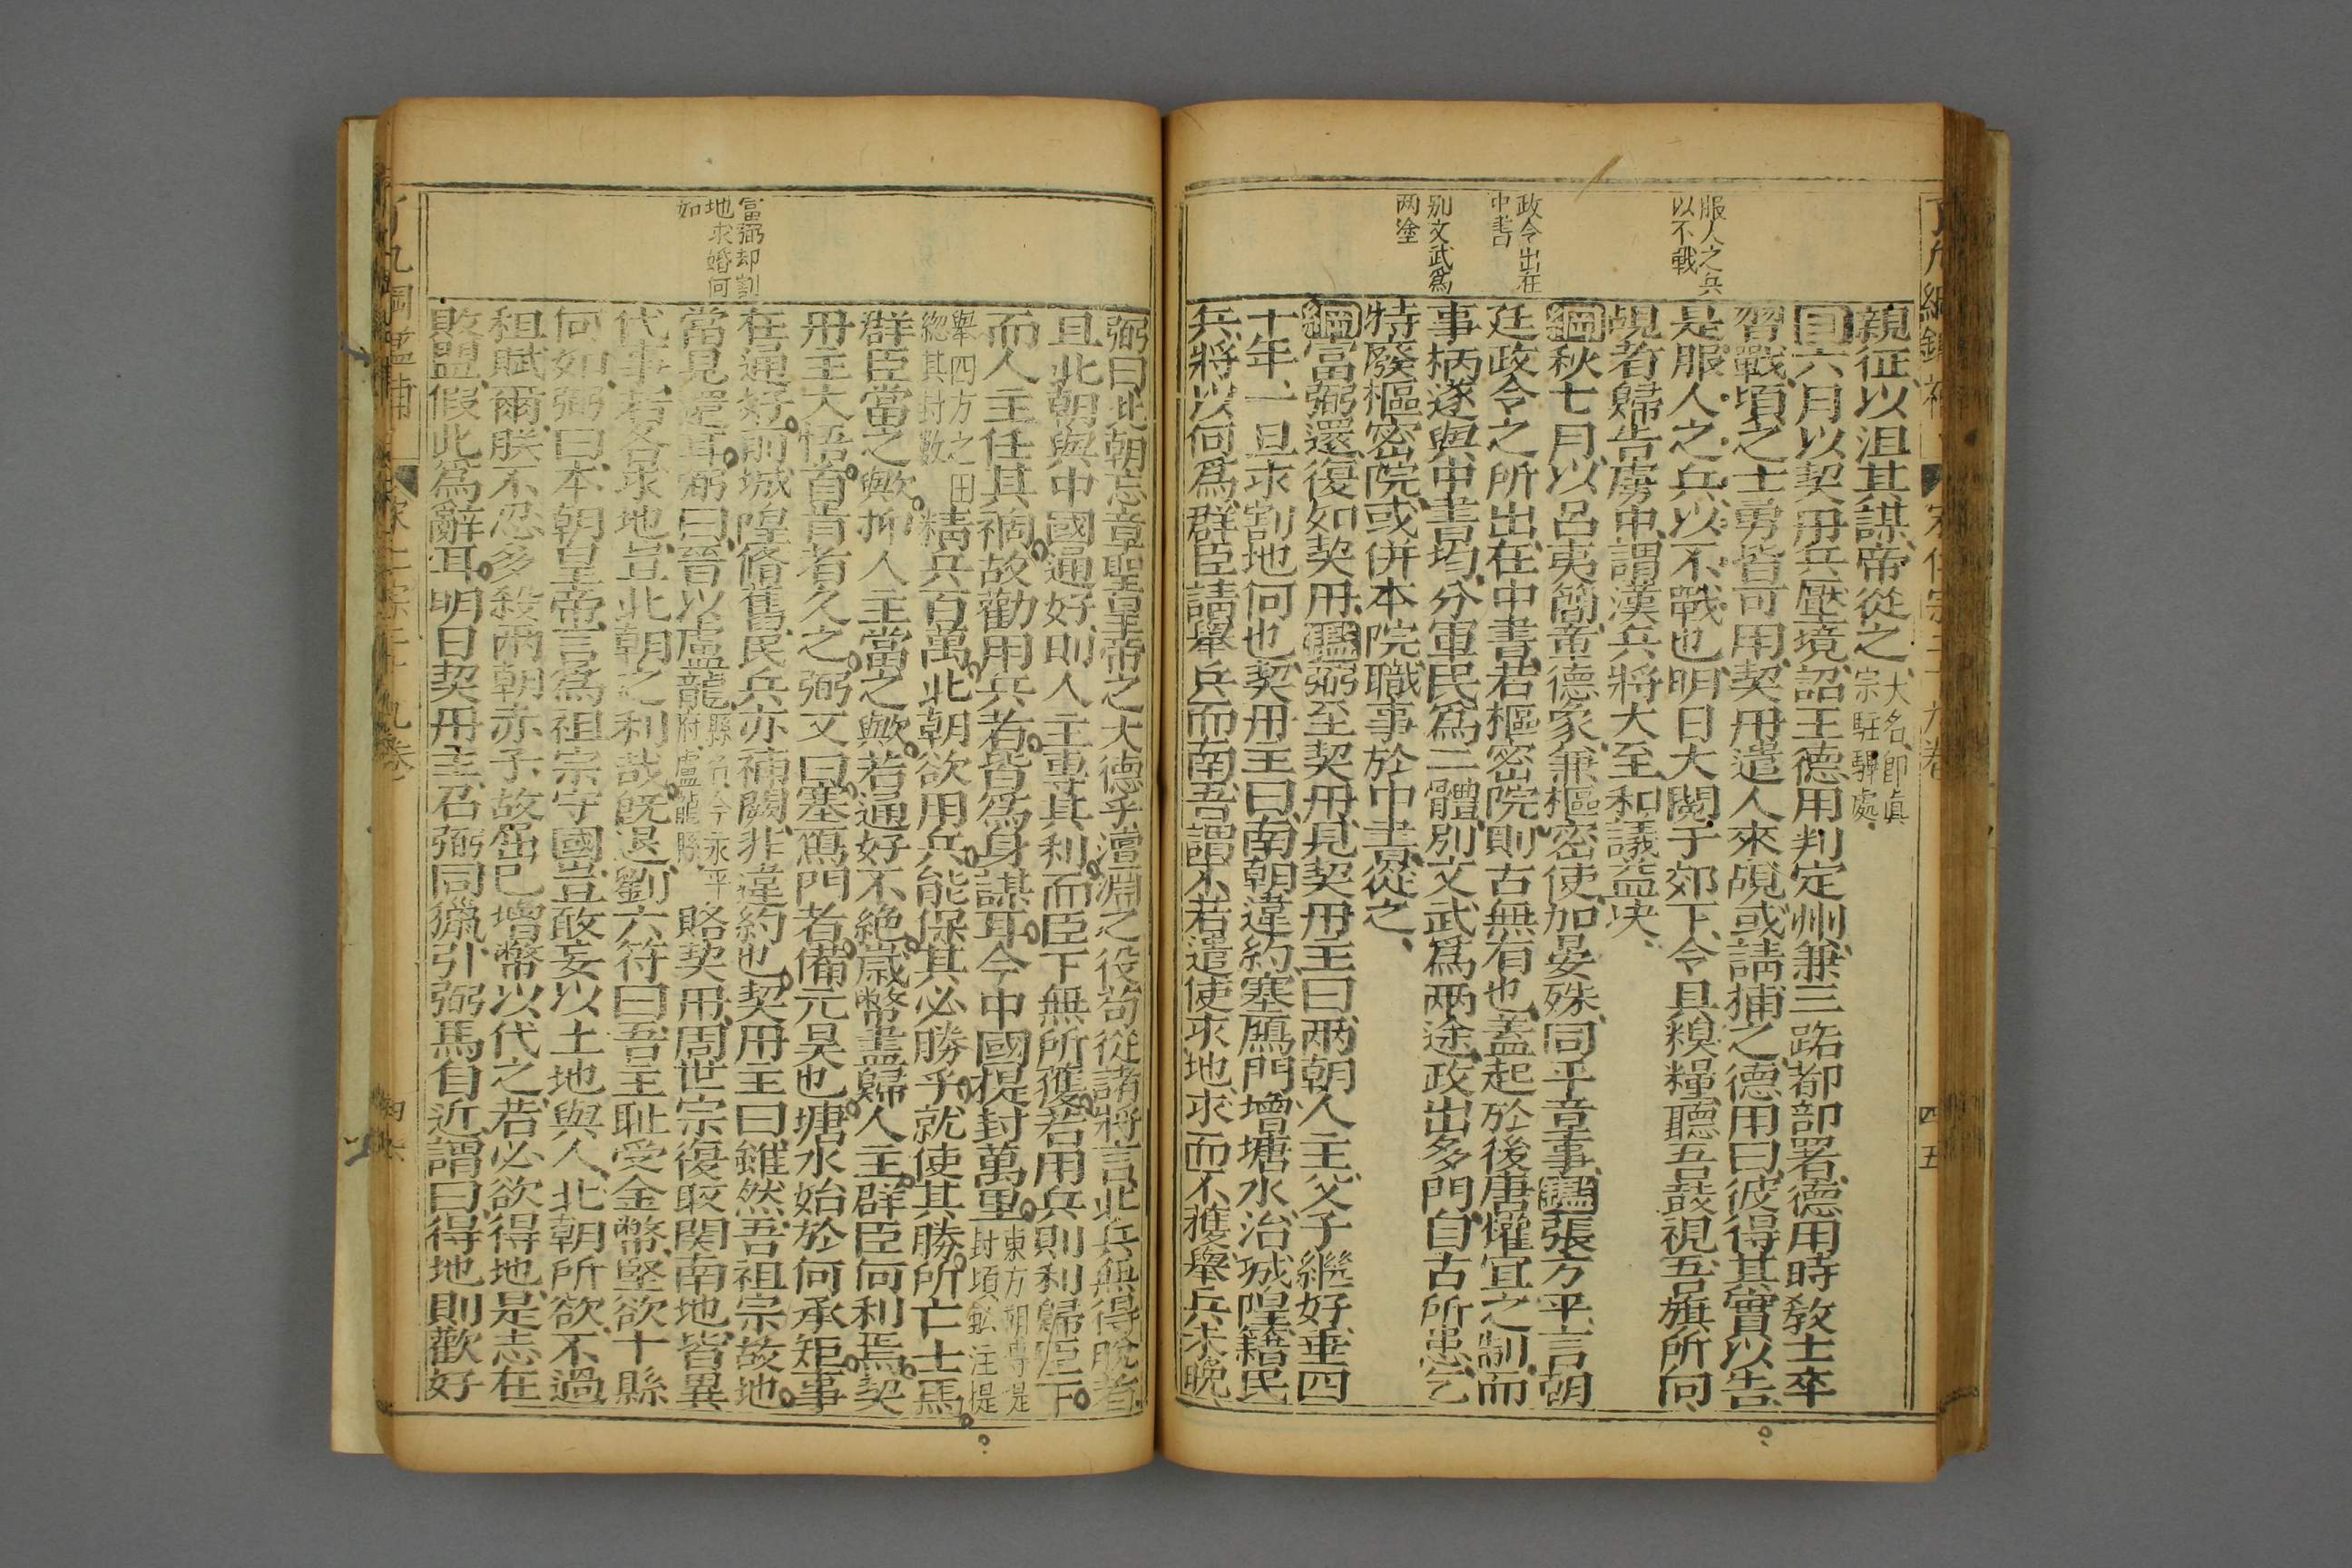 服人之兵
以不戰
政令出在
中書
别文武爲
两塗
親征以沮其謀帝從之
大名即眞
宗駐驆處
目六月以契丹兵壓境詔王德用判定州兼三路都部署德用時敎士卒
習戰頃之士勇皆可用契丹遣人來覘或請捕之德用曰彼得其實以告
是服人之兵以不戰也明日大閱于郊下令具糗糧聽吾鼓視吾旗所向
覘者歸告虜中謂漢兵將大至和議益决
綱秋七月以呂夷簡章德象兼樞密使加晏殊同平章事鑑張方平言朝
廷政令之所出在中書若樞密院則古無有也蓋起於後唐懽宜之制而
事柄遂與中書均分軍民爲二體別文武爲两途政出多門自古所患乞
特廢樞密院或併本院職事於中書從之
綱富弼還復如契丹鑑弼至契丹見契丹主曰两朝人主父子繼好垂四
十年一旦求割地何也契丹主曰南朝違約塞鴈門增塘水治城隍籍民
兵將以何爲群臣請舉兵而南吾謂不若遣使求地求而不獲舉兵未晚
富弼却割
地求婚何
如
弼曰北朝忘章聖皇帝之大德乎澶淵之役苟從諸將言北兵無得脫者
且北朝與中國通好則人主專其利而臣下無所獲若用兵則利歸臣下
而人主任其禍故勸用兵者皆爲身謀耳今中國提封萬里
東方朔傳是
封頃畝注提
舉四方之田
緫其封數
精兵百萬北朝欲用兵能保其必勝乎就使其勝所亡士馬
群臣當之歟抑人主當之歟若通好不絶歲幣盡歸人主群臣何利焉契
丹主大悟首肯者久之弼又曰塞鴈門者備元昊也塘水始於何承矩事
在通好前城隍脩舊民兵亦補闕非違約也契丹主曰雖然吾祖宗故地
當見還耳弼曰晉以盧龍
縣名今永平
府盧龍縣
賂契丹周世宗復取関南地皆異
代事若各求地豈北朝之利哉旣退劉六符曰吾主耻受金幣堅欲十縣
何如弼曰本朝皇帝言爲祖宗守國豈敢妄以土地與人北朝所欲不過
租賦爾朕不忍多殺兩朝赤子故屈已增幣以代之若必欲得地是志在
敗盟假此爲辭耳明日契丹主召弼同獵引弼馬自近謂曰得地則歡好